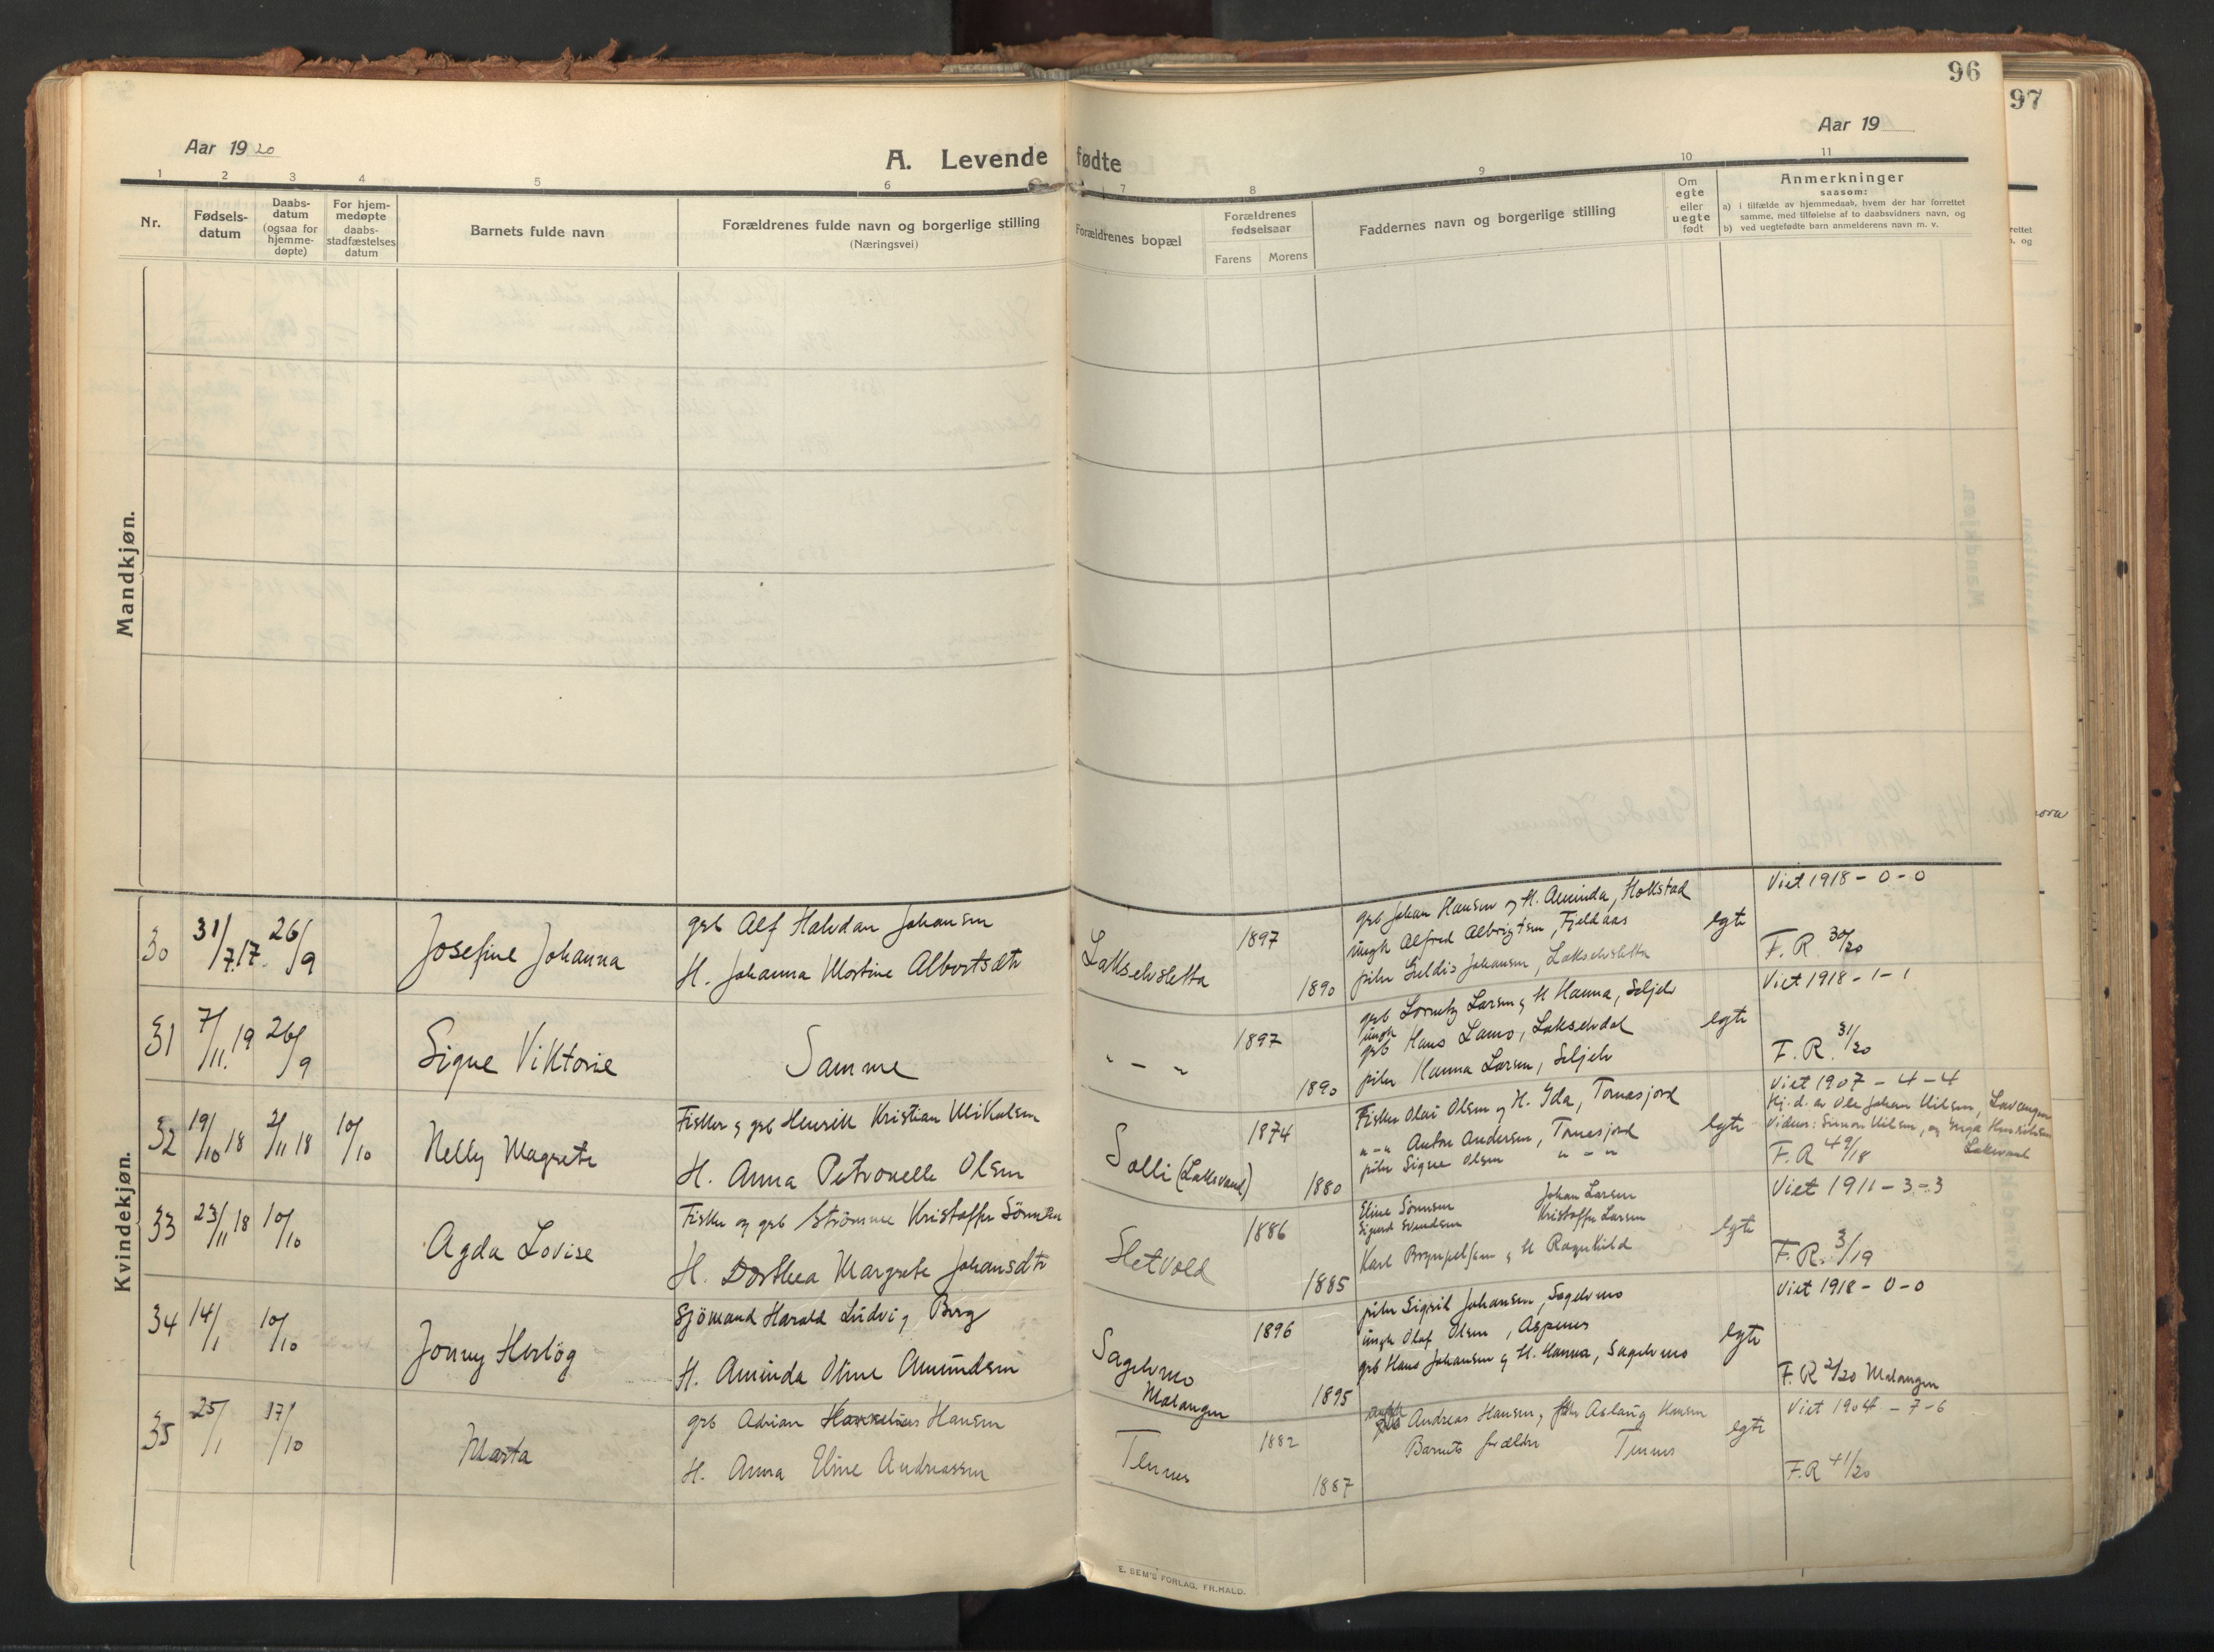 96
97
Aar 1920
A. Levende fødte
Aar 19
1 2 3 4 5 6 7 8 9 10 11
Nr.
Fødselsdatum
Daabsdatum (ogsaa for hjemmedøpte)
For hjemmedøpte daabsstadfæstelses datum
Barnets fulde navn
Forældrenes fulde navn og borgerlige stilling
(Næringsvei)
Forældrenes bopæl
Forældrenes fødselsaar
Farens Morens
Faddernes navn og borgerlige stilling
Om egte eller uegte født
Anmerkninger
saasom:
a) i tilfælde av hjemmedaab, hvem der har forrettet samme, med tilføielse af to daabsvidners navn, og
b) ved uegtefødte barn anmelderens navn m. v.
Mandkjøn.
Kvindekjøn.
30 31/7.17. 26/9
Josefine Johanna
grb Alf Halvdan Johansen
H. Johanna Martine Albertsdtr
Lakselvsletta
1897
1890
grb Johan Hansen og H. Aminda, Holkstad
ungk Alfred Albrigtsen, Fjeldaas
piken Guldis Johansen, Lakselvsletta
egte
Viet 1918 - 0 - 0
F. R. 30/20
31 7/11. 19 26/9
Signe Viktorie
Samme
" - "
1897
1890
grb Lorentz Larsen og H Hanna, Seljelv
ungk
grb Hans Larsen, Lakselvdal
piken Hanna Larsen, Seljelv
egte
Viet 1918 - 1 - 1
F. R. 31/20
32 19/10 18 2/11 18 10/10
Nelly Magrete
Fisker og grb Henrik Kristian Mikalsen
H. Anna Petronelle Olsen
Solli (Laksvand)
1874
1880
Fisker Olai Olsen og H. Ida, Tomasjord
" - " Anton Andersen, Tomasjord
piken Signe Olsen " - "
egte
Viet 1907 - 4 - 4
Hj. d. av Ole Johan Nilsen, Lavangen
Vidner: Simon Nilsen, og Inga Henriksen
Laksvand
F. R 49/18
33 23/11 18 10/10
Agda Lovise
Fisker og grb Strömme Kristoffer Sörensen
H. Dorthea Margrete Johansdtr
Sletvold
1886
1885
Eline Sörensen Johan Larsen
Sigurd Svendsen Kristoffer Larsen
Karl Brynjulfsen og H Ragnhild
egte
Viet 1911 - 3 - 3
F. R. 3/19
34 14/1 10/10
Jonny Herlög
Sjömand Harald Ludvig Berg
H. Aminda Oline Amundsen
Sagelvmo
Malangen
1896
1895
piken Sigrid Johansen, Sagelvmo
ungk Olaf Olsen, Aspenes
grb Hans Johansen og H. Hanna, Sagelvmo
egte
Viet 1918 - 0 - 0
F. R 2/20 Malangen
35 25/1 17/10
Marta
grb Adrian Hansen
H. Anna Eline Andreassen
Tennes
1882
1887
Andreas Hansen, Aslaug Hansen
Barnets forældre Tennes
egte
Viet 1904 - 7 - 6
F. R 41/20
E. SEM'S FORLAG. FR.HALD.